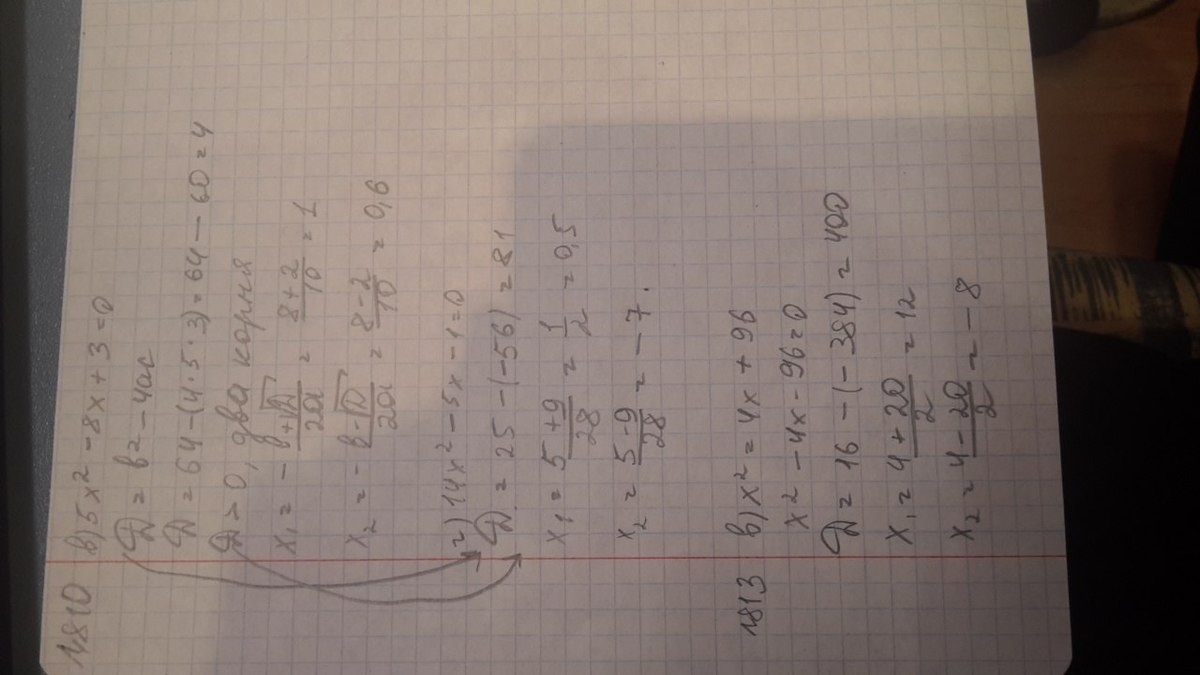 1.810 в) 5x² - 8x + 3 = 0
D = b² - 4ac
D = 64 - (4·5·3) = 64 - 60 = 4
D > 0, два корня
x₁ = - b+√D / 2a = 8+2 / 10 = 1
x₂ = - b-√D / 2a = 8-2 / 10 = 0,6
г) 14x² - 5x - 1 = 0
D = 25 - (-56) = 81
x₁ = 5+9 / 28 = 1/2 = 0,5
x₂ = 5-9 / 28 = - 7.
1813 в) x² = 4x + 96
x² - 4x - 96 = 0
D = 16 - (-384) = 400
x₁ = 4+20 / 2 = 12
x₂ = 4-20 / 2 = - 8